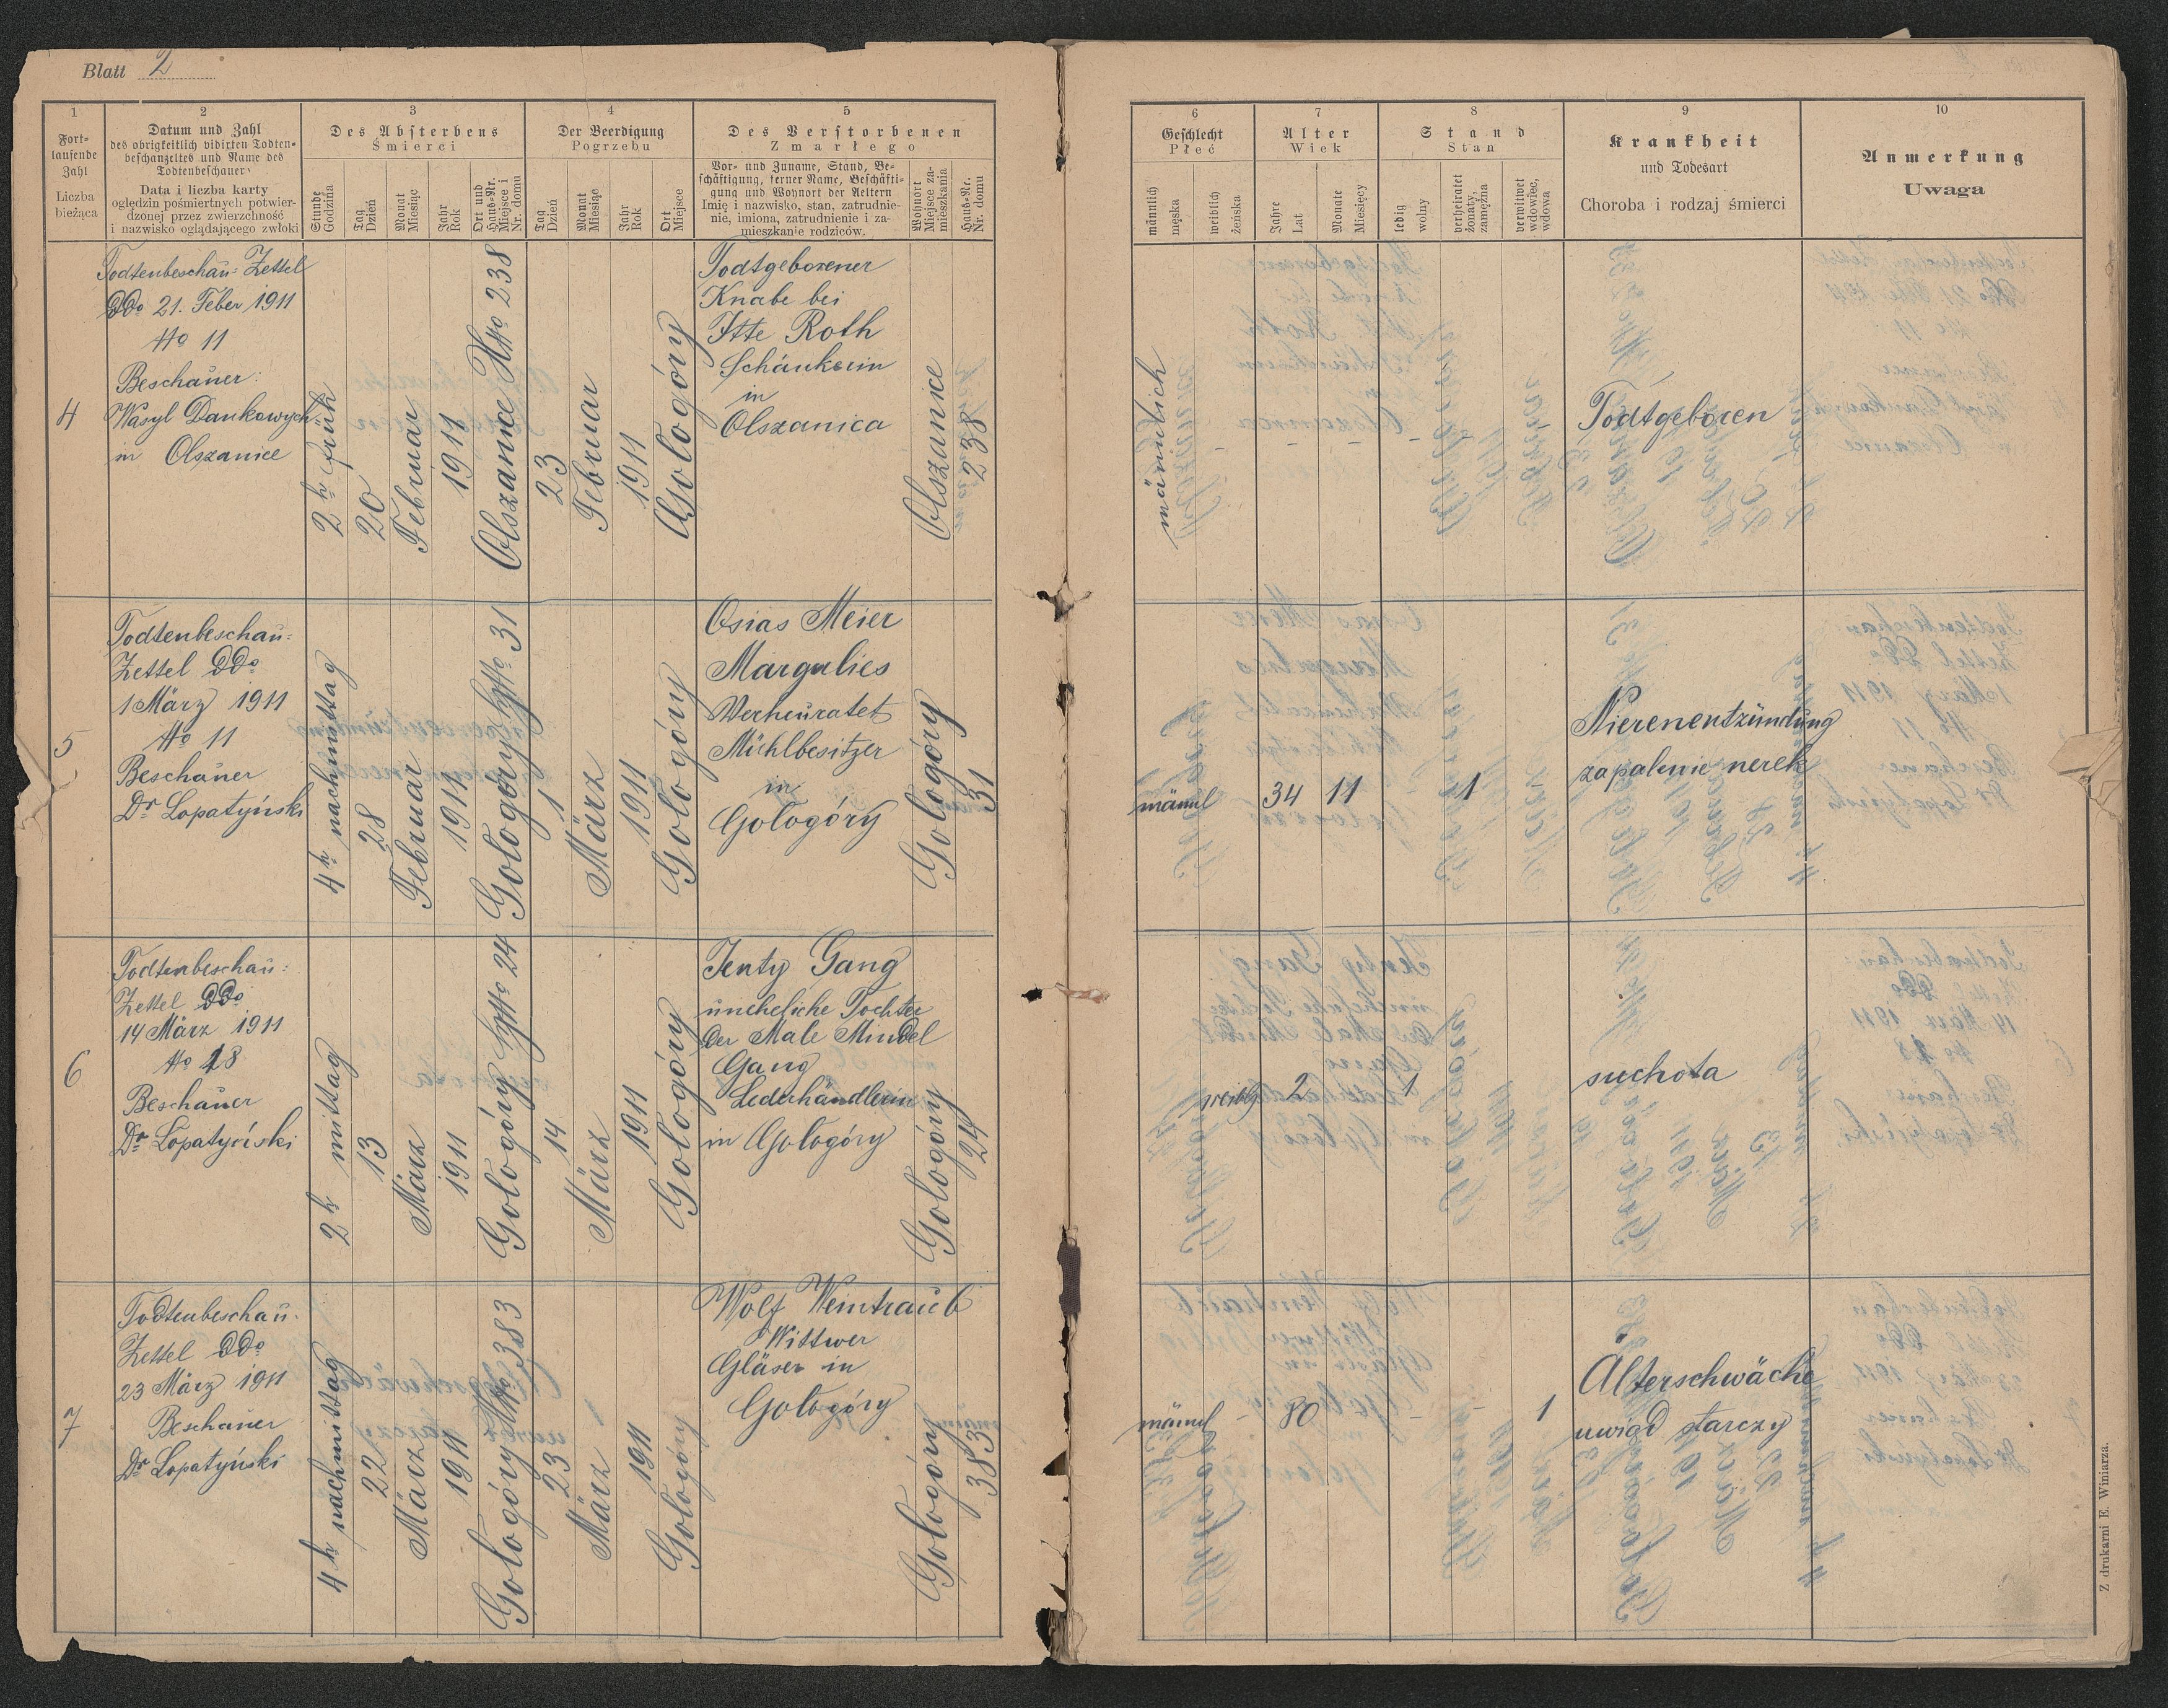 Blatt 2
1
Fort-
laufende
Zahl
Liczba
bieżąca
2
Datum und Zahl
des obrigkeitlich vidirten Todten-
beschauzettels und Name des
Todtenbeschauers
Data i liczba karty
oględzin pośmiertnych potwier-
dzonej przez zwierzchność
i nazwisko oglądającego zwłoki
3
Des Absterbens
Śmierci
Stunde
Godzina
Tag
Dzień
Monat
Miesiąc
Jahr
Rok
Ort und
Haus-Nr.
Miejsce i
Nr. domu
4
Der Beerdigung
Pogrzebu
Tag
Dzień
Monat
Miesiąc
Jahr
Rok
Ort
Miejsce
5
Des Verstorbenen
Zmarłego
Vor- und Zuname, Stand, Be-
schäftigung, ferner Name, Beschäfti-
gung und Wohnort der Aeltern
Imię i nazwisko, stan, zatrudnie-
nie, imiona, zatrudnienie i za-
mieszkanie rodziców.
Wohnort
Miejsce za-
mieszkania
Haus-Nr.
Nr. domu
6
Geschlecht
Płeć
männlich
męska
weiblich
żeńska
7
Alter
Wiek
Jahre
Lat
Monate
Miesięcy
8
Stand
Stan
ledig
wolny
verheiratet
żonaty,
zamężna
verwitwet
wdowiec,
wdowa
9
Krankheit
und Todesart
Choroba i rodzaj śmierci
10
Anmerkung
Uwaga
4
Todtenbeschau= Zettel
DDo 21. Feber 1911
No 11
Beschauer:
Wasyl Dankowych
in Olszanice
2h früh
20
Februar
1911
Olszanice HNo 238
23
Februar
1911
Gologóry
Todtgeborener
Knabe bei
Itte Roth
Schänkerin
in
Olszanica
Olszanice
238
männlich
-
-
-
-
-
-
Todtgeboren
5
Todtenbeschau=
Zettel DDo
1 März 1911
No 11
Beschauer
Dr Lopatyński
4h nachmittag
28
Februar
1911
Gologóry HNo 31
1
März
1911
Gologóry
Osias Meier
Margulies
Verheuratet
Mühlbesitzer
in
Gologóry
Gologóry
31
männl
34
11
-
1
Nierenentzündung
zapalenie nerek
6
Todtenbeschau=
Zettel DDo
14 März 1911
No 18
Beschauer
Dr Lopatyński
2h mittag
13
März
1911
Gologóry HNo 24
14
März
1911
Gologóry
Jenty Gang
uneheliche Tochter
der Male Mindel
Gang
Lederhändlerin
in Gologóry
Gologóry
24
weibl
2
1
suchota
7
Todtenbeschau=
Zettel DDo
23 März 1911
Beschauer
Dr Lopatyński
4h nachmittag
22
März
1911
Gologóry HNo 383
23
März
1911
Gologóry
Wolf Weintraub
Wittwer
Gläser in
Gologóry
Gologóry
383
männl
-
80
-
-
-
1
Alterschwäche
uwiąd starczy
Z drukarni E. Winiarza.